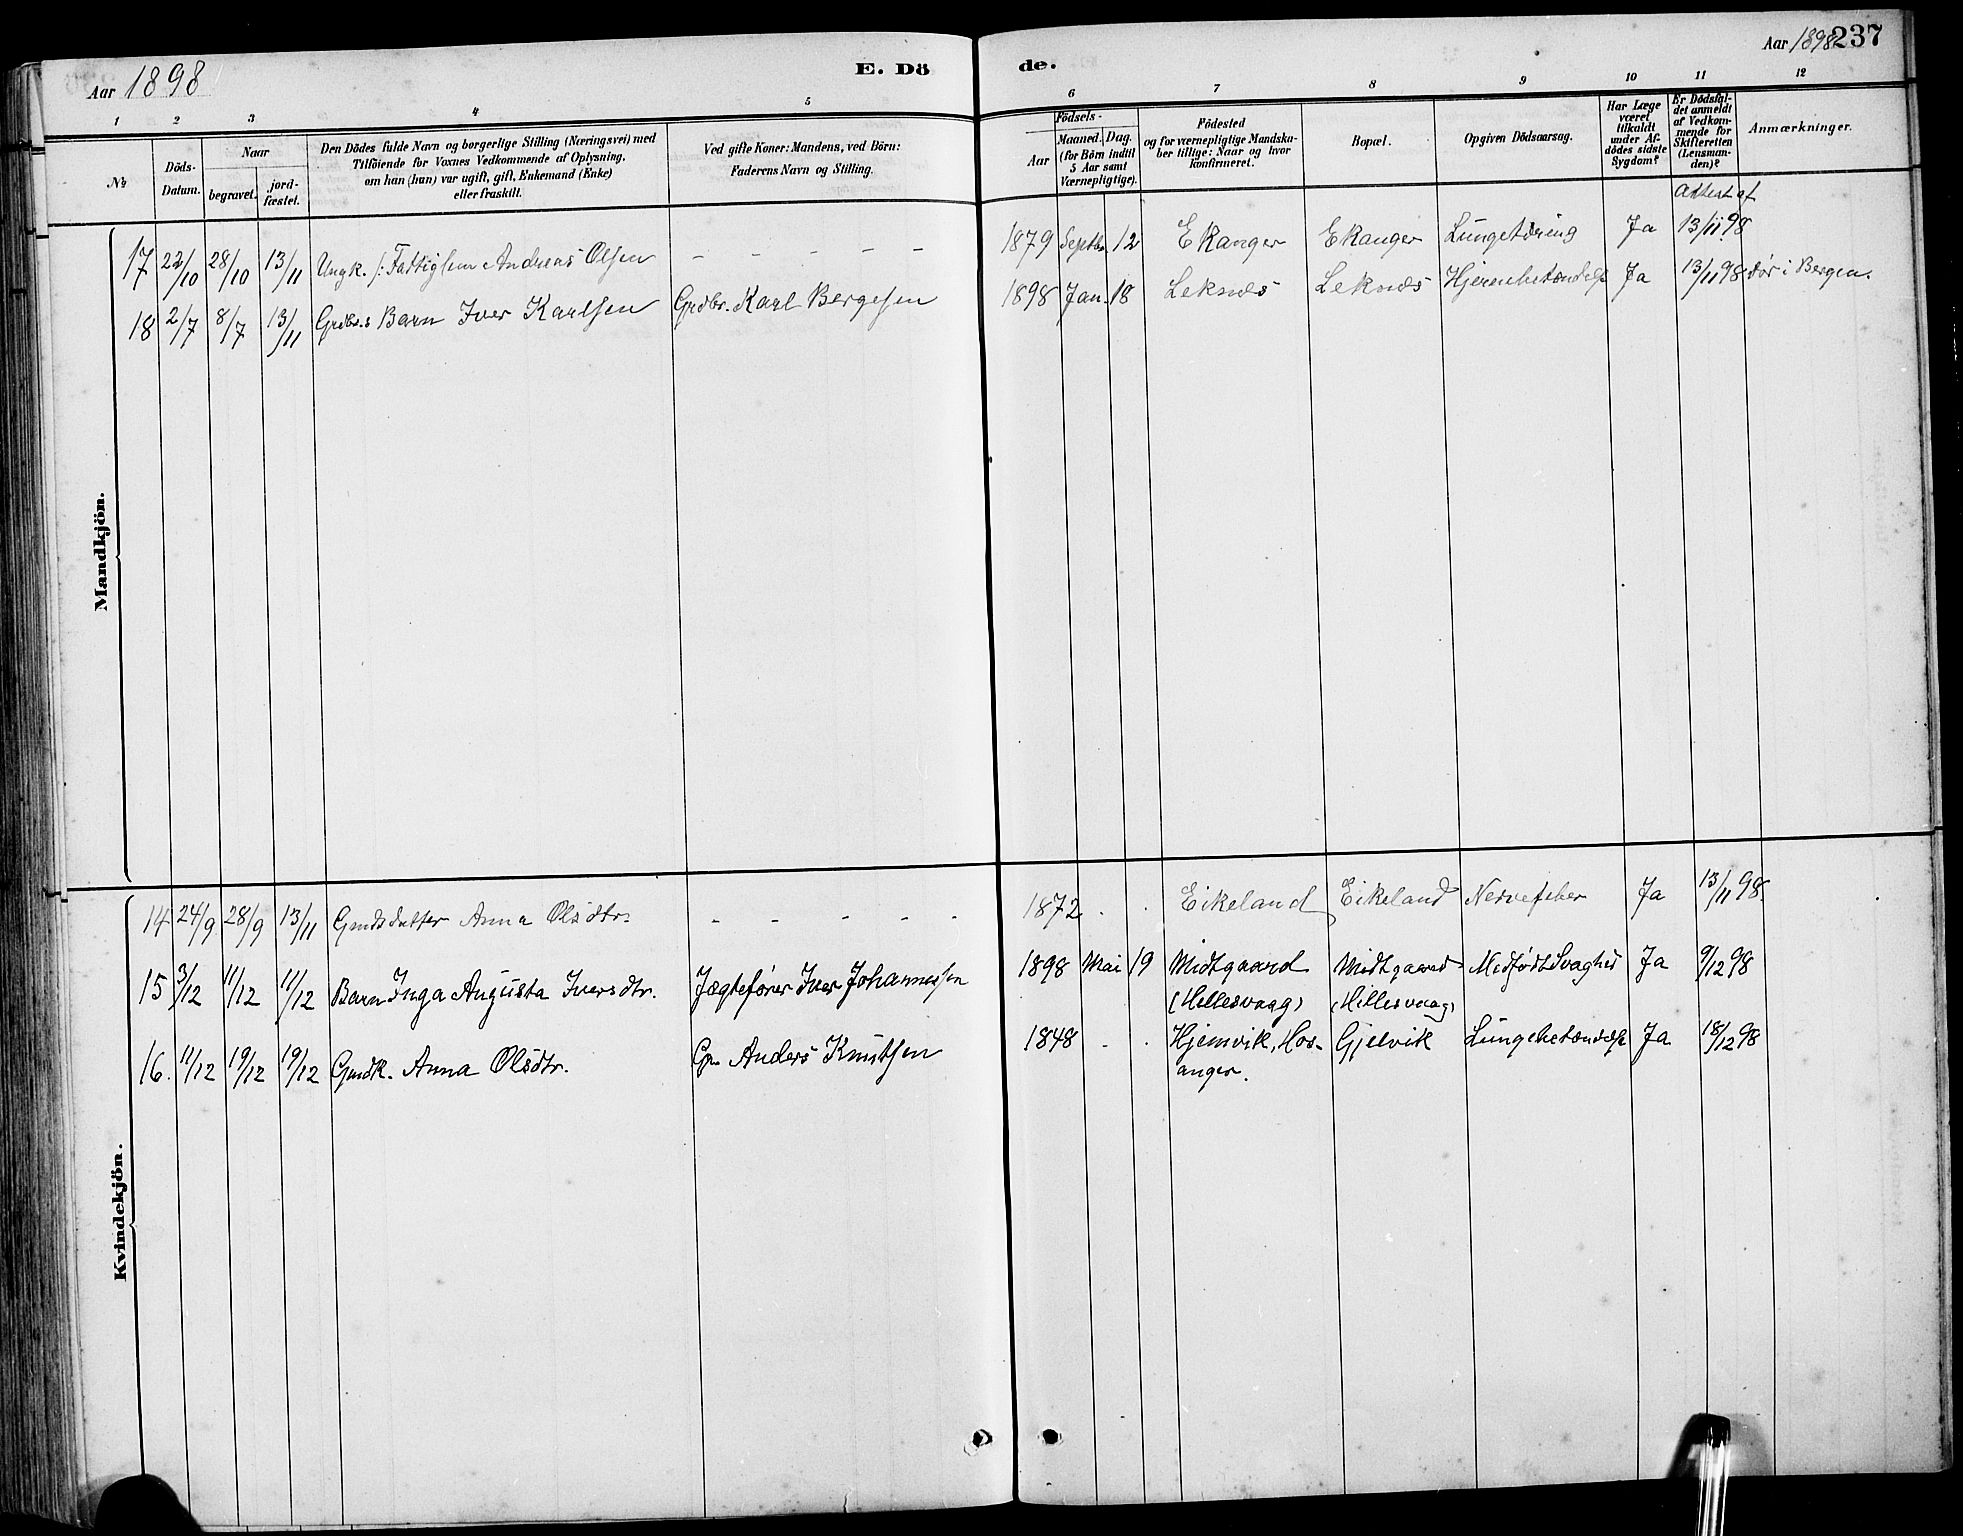 Aar 1898
E. Dö
de.
Aar 1898
237
1 2 3 4 5 6 7 8 9 10 11 12
№
Döds-
Datum.
Naar
begravet.
jord-
fæstet.
Den Dödes fulde Navn og borgerlige Stilling (Næringsvei) med
Tilföiende for Voxnes Vedkommende af Oplysning,
om han (hun) var ugift, gift, Enkemand (Enke)
eller fraskilt.
Ved gifte Koner: Mandens, ved Börn:
Faderens Navn og Stilling.
Födsels-
Aar
Maaned. Dag.
(for Börn indtil
5 Aar samt
Værnepligtige).
Födested
og for værnepligtige Mandska-
ber tillige: Naar og hvor
konfirmeret.
Bopæl.
Opgiven Dödsaarsag.
Har Læge
været
tilkaldt
under Af-
dödes sidste
Sygdom?
Er Dödsfal-
det anmeldt
af Vedkom-
mende for
Skifteretten
(Lensman-
den)?
Anmærkninger.
Attest af
Mandkjön.
17 22/10 28/10 13/11 Ungk. /: Fattiglem Andreas Olsen - - - - - 1879 Septbr. 12 Ekanger Ekanger Lungetæring Ja 13/11 98
18 2/7 8/7 13/11 Grdbr.s Barn Iver Karlsen Grdbr. Karl Bergesen 1898 Jan. 18 Leknes Leknes Hjernebetændelse Ja 13/11 98 dør i Bergen.
Kvindekjön.
14 24/9 28/9 13/11 Gmdsdatter Anna Olsdtr. - - - - - 1872 . . Eikeland Eikeland Nervefeber Ja 13/11 98.
15 3/12 11/12 11/12 Barn Inga Augusta Iversdtr. Jægtefører Iver Johannessen 1898 Mai 19 Midtgaard Midtgaard Medfødt Svaghed Ja 9/12 98
(Hillesvaag) (Hillesvaag)
16. 11/12 19/12 19/12 Gmdk. Anna Olsdtr. Gm. Anders Knutsen 1848 . . Hjemvik, Hos- Gjelvik Lungebetændelse Ja 18/12 98
anger.